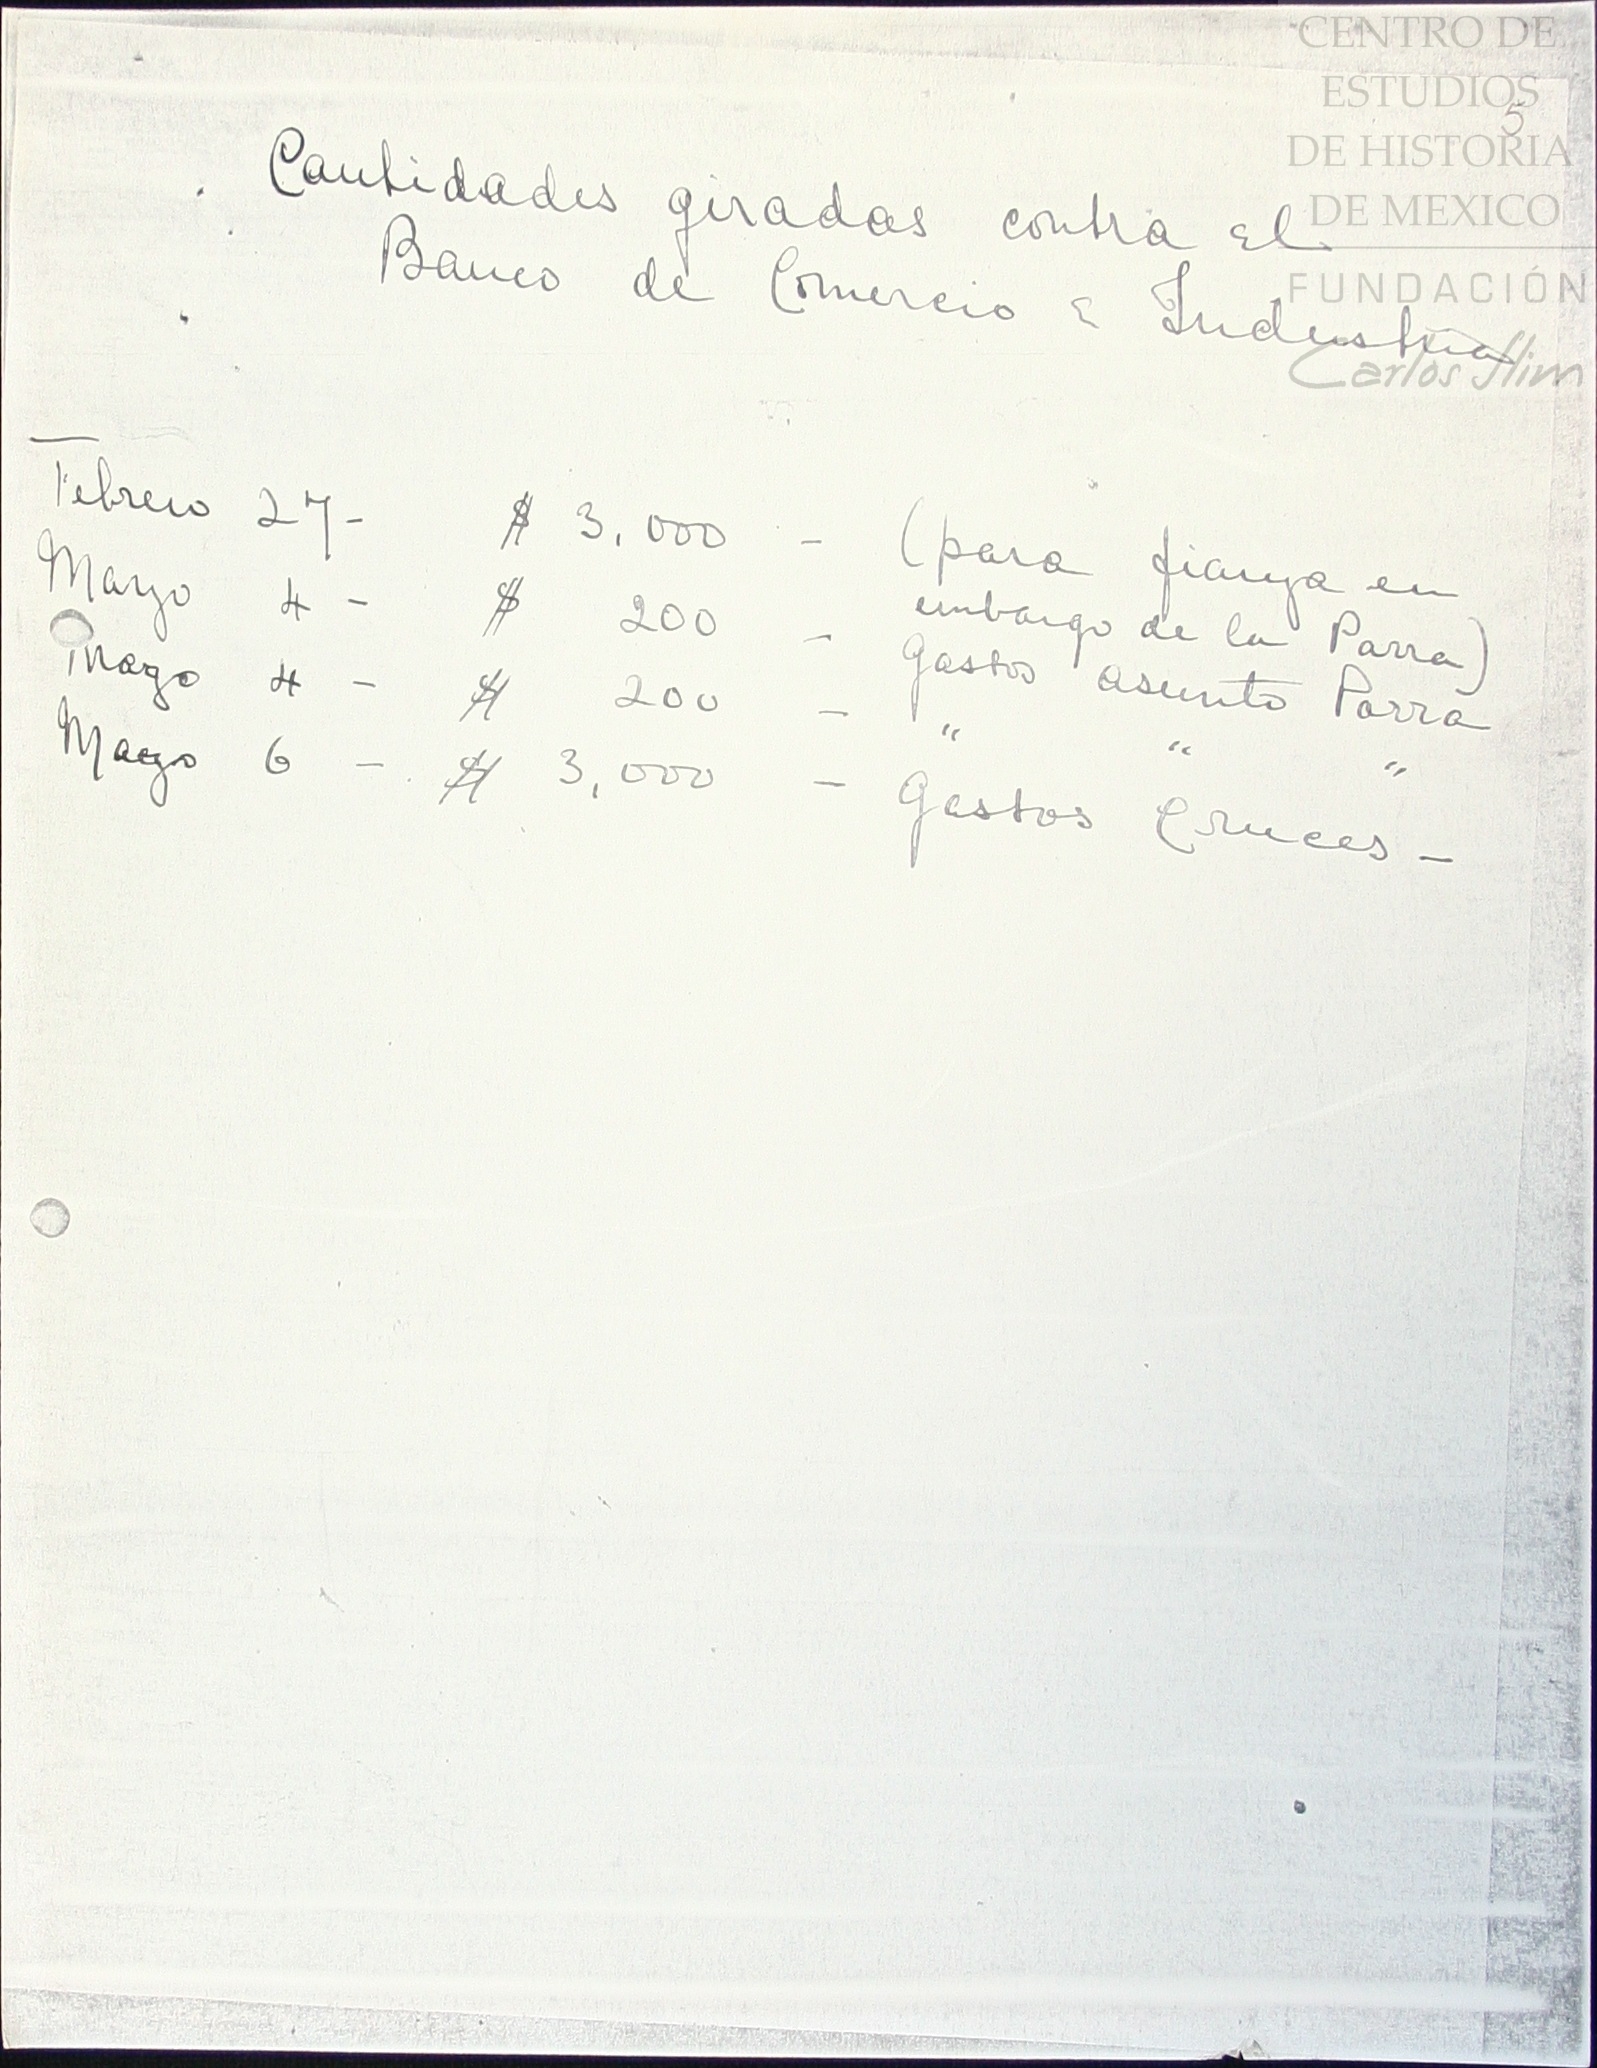 CENTRO DE
ESTUDIOS
DE HISTORIA
DE MEXICO
FUNDACIÓN
Carlos Slim
5
Cantidades giradas contra el
Banco de Comercio e Industria
Febrero 27- $ 3,000 - (para fianza en
embargo de la Parra)
Marzo 4 - $ 200 - Gastos asunto Parra
Marzo 4 - $ 200 - " " "
Marzo 6 - $ 3,000 - Gastos Cruces -